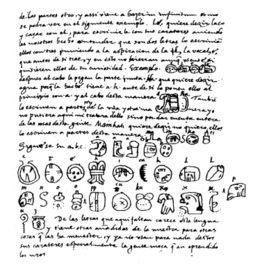 de las partes otro, y assi viene a hazer in infinitum como
se podra ver en el siguiente exemplo. Lé, quiere dezir laço
y caçar con el, para escrivirle con sus carateres, aviendo
les nosotros hecho entender que son dos letras lo escrivian
ellos con tres puniendo a la aspiracion de la l, la vocal e,
que antes de si trae, y en esto no hierran
quisieren ellos de su curiosidad. Exemplo.
despues al cabo le pegan la parte junta. Ha que quiere dezir
agua porque la hache tiene a antes de si lo ponen ellos al
principio con a y al cabo desta manera. Tambi
lo escriven a partes de la una y otra manera yo
no pusiera aqui ni tratara dello sino por dar cuenta entera
de las cosas desta gente. Mainkati quiere dezir no quiero ellos
lo escriven a partes desta manera
Siguese su a.b.c.
De las letras que aqui faltan carece esta lengua
y tiene otras añadidas de la nuestra para otras
cosas que las ha menester, y ya no usan para nada destos
sus carateres especialmente la gente moça que an aprendido
los nros